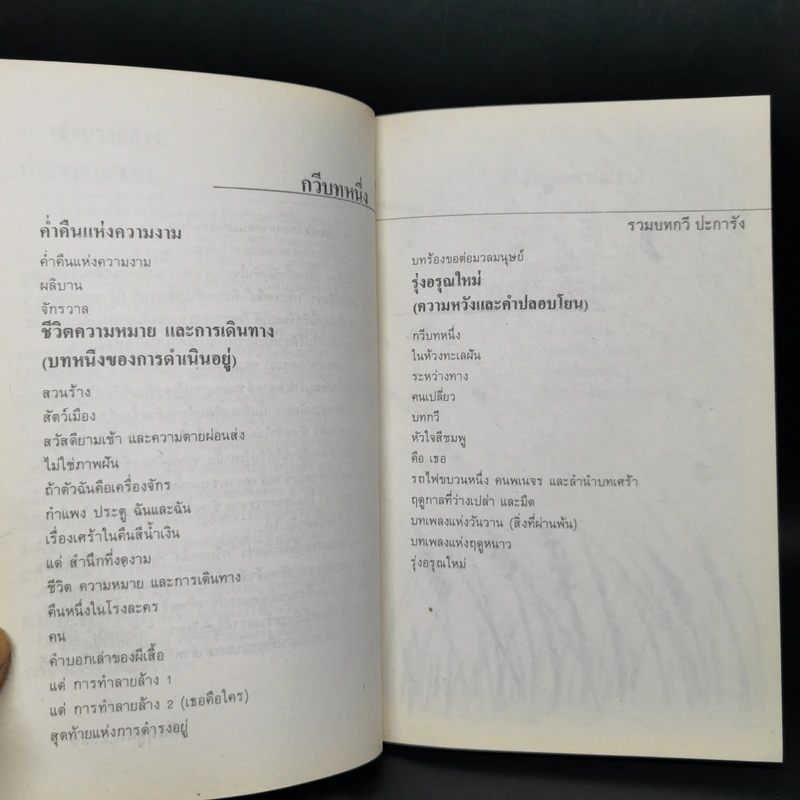 กวีบทหนึ่ง
ค่ำคืนแห่งความงาม
ค่ำคืนแห่งความงาม
ผลิบาน
จักรวาล
ชีวิตความหมาย และการเดินทาง
(บทหนึ่งของการดำเนินอยู่)
สวนร้าง
สัตว์เมือง
สวัสดียามเช้า และความตายผ่อนส่ง
ไม่ใช่ภาพฝัน
ถ้าตัวฉันคือเครื่องจักร
กำแพง ประตู ฉันและฉัน
เรื่องเศร้าในคืนสีน้ำเงิน
แด่ สำนึกที่งดงาม
ชีวิต ความหมาย และการเดินทาง
คืนหนึ่งในโรงละคร
คน
คำบอกเล่าของผีเสื้อ
แด่ การทำลายล้าง 1
แด่ การทำลายล้าง 2 (เธอคือใคร)
สุดท้ายแห่งการดำรงอยู่
รวมบทกวี ปะการัง
บทร้องขอต่อมวลมนุษย์
รุ่งอรุณใหม่
(ความหวังและคำปลอบโยน)
กวีบทหนึ่ง
ในห้วงทะเลฝัน
ระหว่างทาง
คนเปลี่ยว
บทกวี
หัวใจสีชมพู
คือ เธอ
รถไฟขบวนหนึ่ง คนพเนจร และลำนำบทเศร้า
ฤดูกาลที่ว่างเปล่า และมืด
บทเพลงแห่งวันวาน (สิ่งที่ผ่านพ้น)
บทเพลงแห่งฤดูหนาว
รุ่งอรุณใหม่